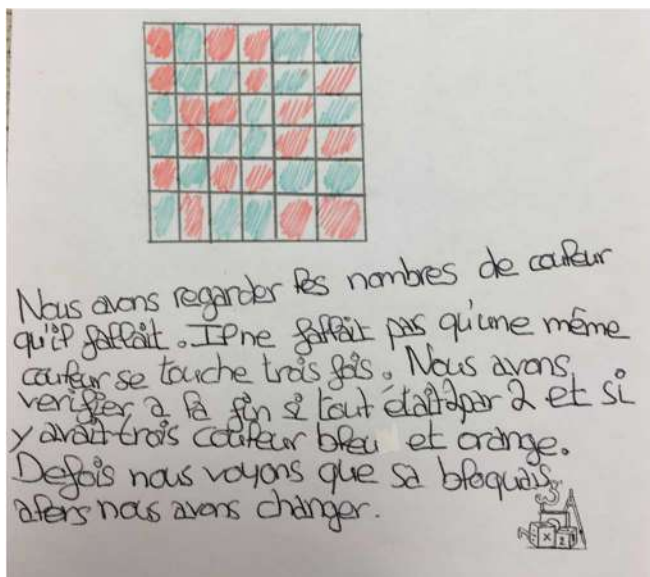 Nous avons regarder les nombres de couleur
qu'il fallait. Il ne fallait pas qu'une même
couleur se touche trois fois. Nous avons
verifier a la fin si tout était par 2 et si
y avait trois couleur bleu et orange.
Defois nous voyons que sa bloquais
alors nous avons changer.